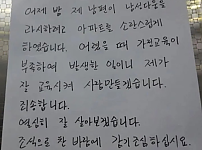 어제 밤 제 남편이 남성다움을
과시하려고 아파트를 소란스럽게
하였습니다. 어렸을 때 가정교육이
부족하여 발생한 일이니 제가
잘 교육시켜 사람만들겠습니다.
죄송합니다.
열심히 잘 살아보겠습니다.
조식으로 찬 바람에 감기조심하십시요.